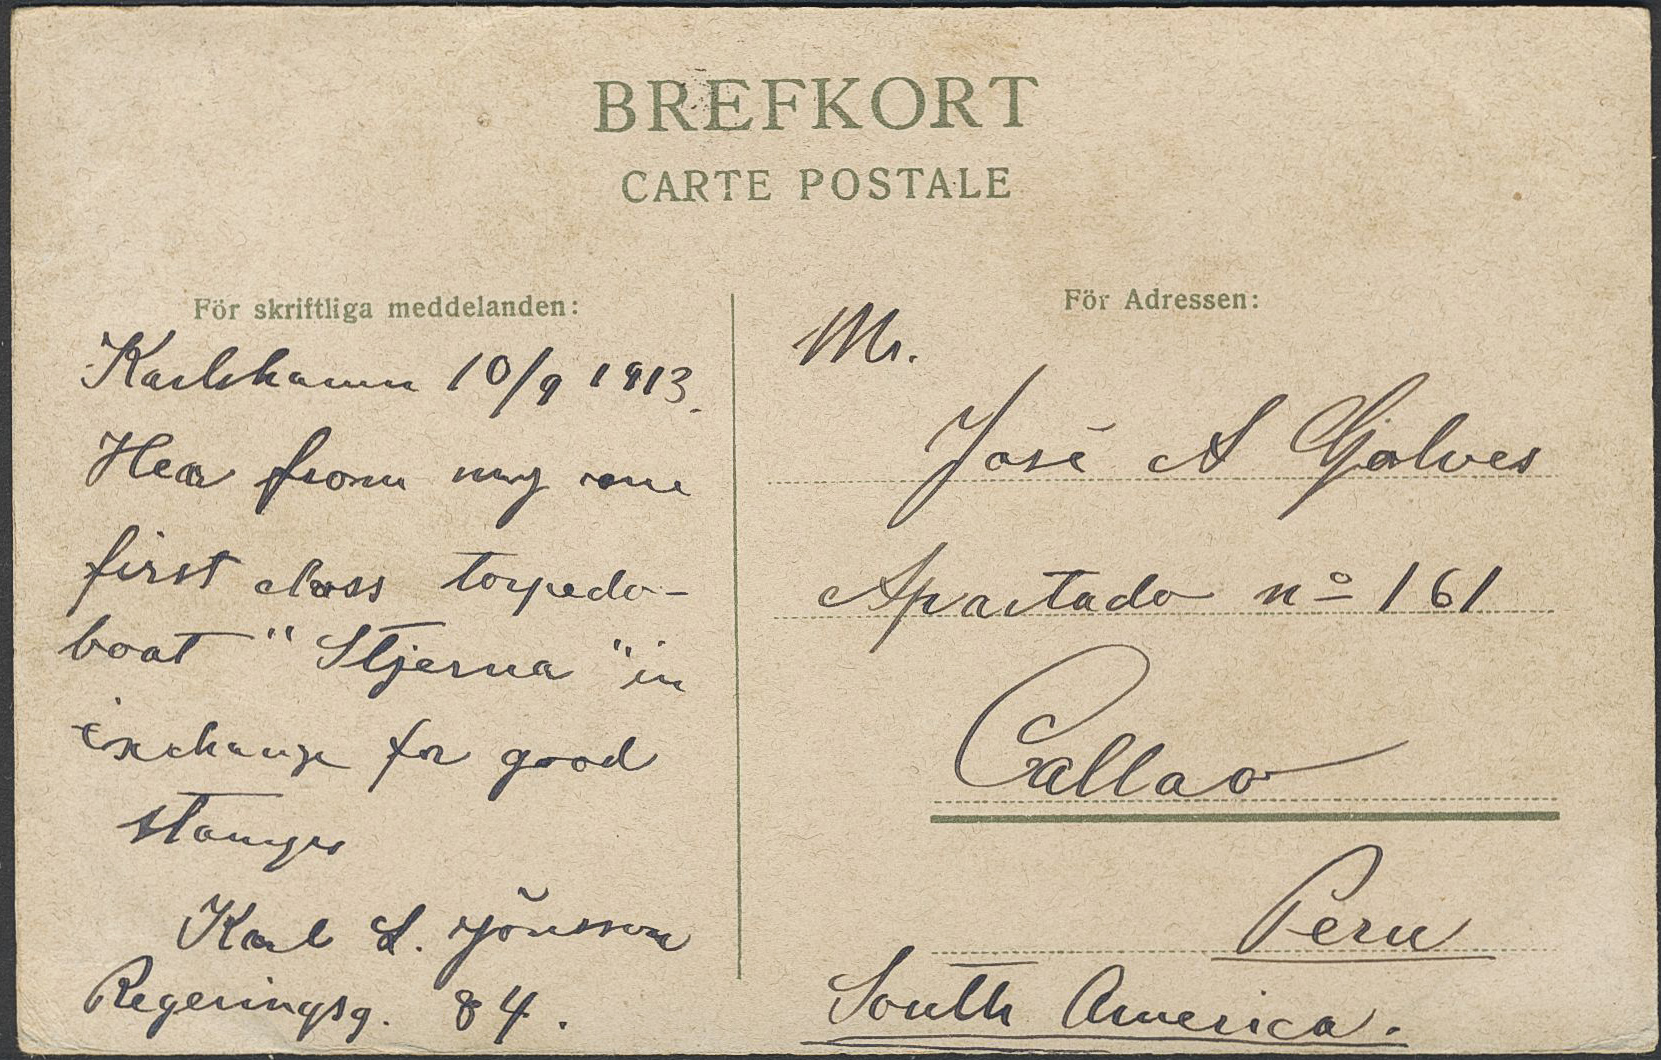 BREFKORT
CARTE POSTALE
För skriftliga meddelanden:
Karlshamn 10/9 1913.
Hea from my one
first class torpedo-
boat "Stjerna" in
exchange for good
stamps
Karl L. Jönsson
Regeringsg. 84.
För Adressen:
Mr.
José A Gjalves
Apartado nº 161
Callao
Peru
South America.